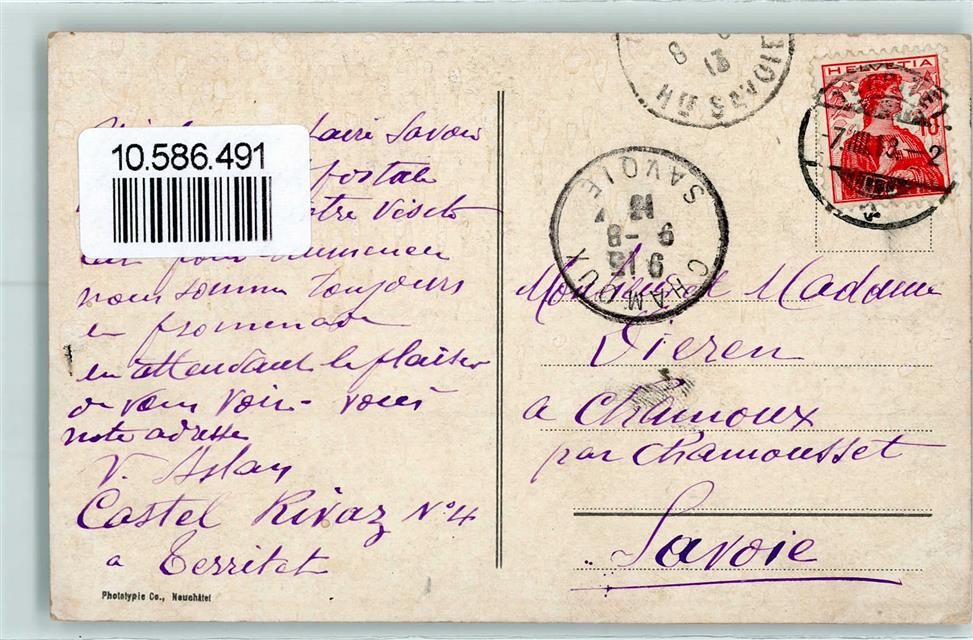 faire Savoir
10.586.491
postale
votre visite
pour
nous sommes toujours
en promenade
en attendant le plaisir
de vous voir - voici
notre adresse
V. Aslan
Castel Rivaz N°4
a Territet
Phototypie Co., Neuchâtel
HELVETIA
10
CHAMOUX
SAVOIE
Monsieur et Madame
Vieren
a Chamoux
par Chamousset
Savoie